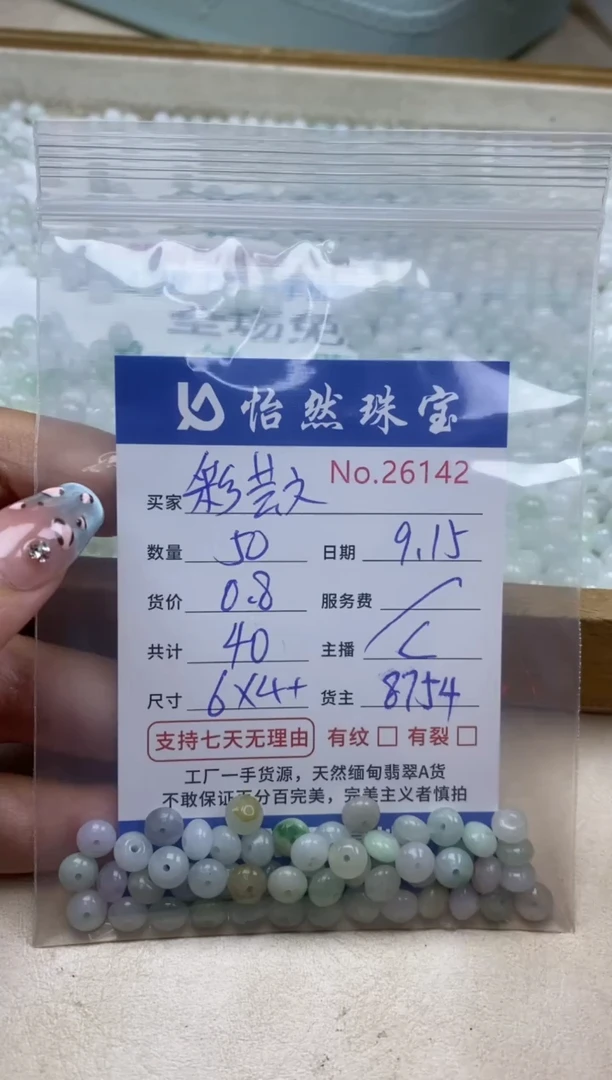 全场免
怡然珠宝
No.26142
买家 彩芸文
数量 50 日期 9.15
货价 0.8 服务费 /
共计 40 主播 L
尺寸 6X4+ 货主 8754
支持七天无理由 有纹 □ 有裂 □
工厂一手货源，天然缅甸翡翠A货
不敢保证百分百完美，完美主义者慎拍